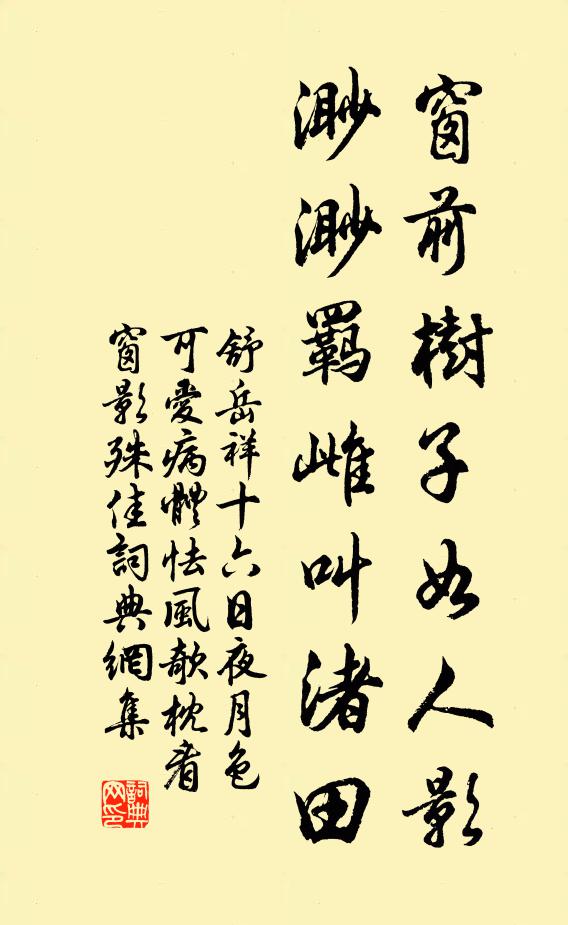 窗前樹子如人影
渺渺羁雌叫渚田
舒岳祥十六日夜月色
可愛病體怯風欹枕看
窗影殊佳詞典網集
詞典网印